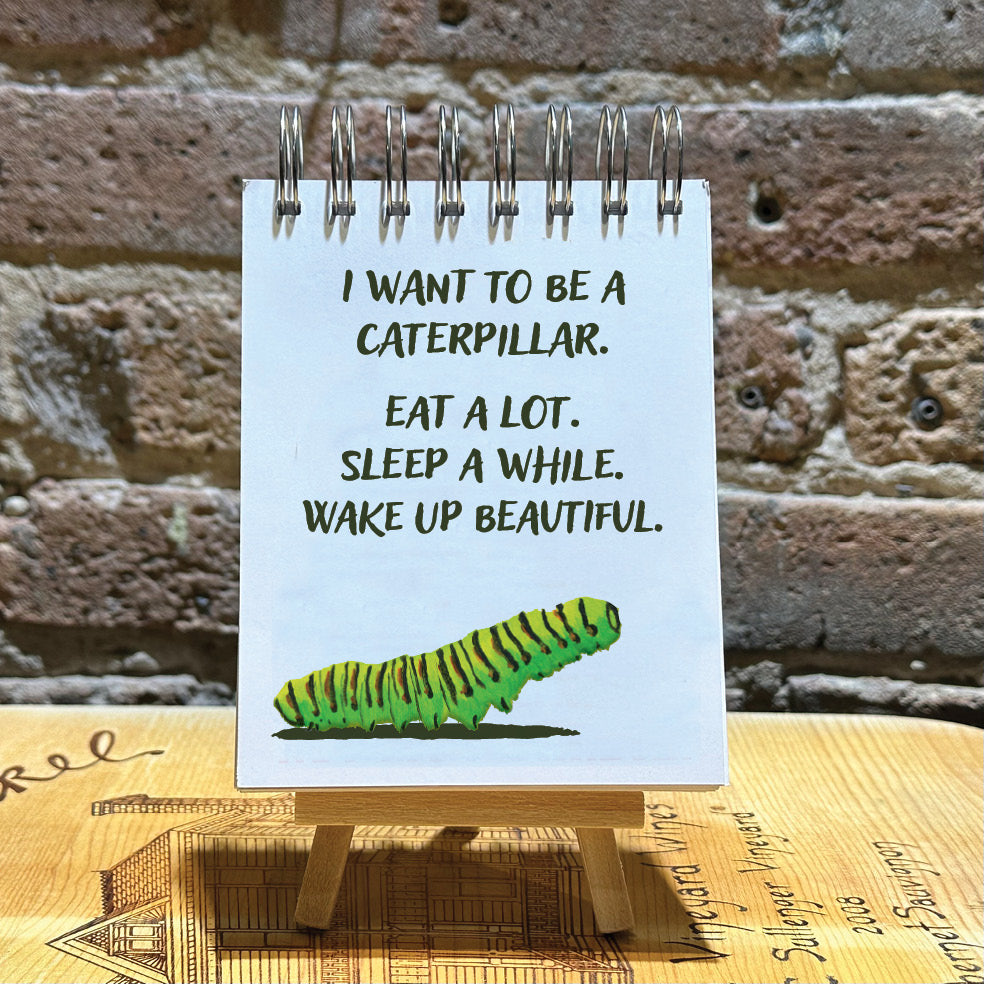 I WANT TO BE A
CATERPILLAR.
EAT A LOT.
SLEEP A WHILE.
WAKE UP BEAUTIFUL.
Vineyard Vines
Sullenger Vineyard
2008
Cabernet Sauvignon